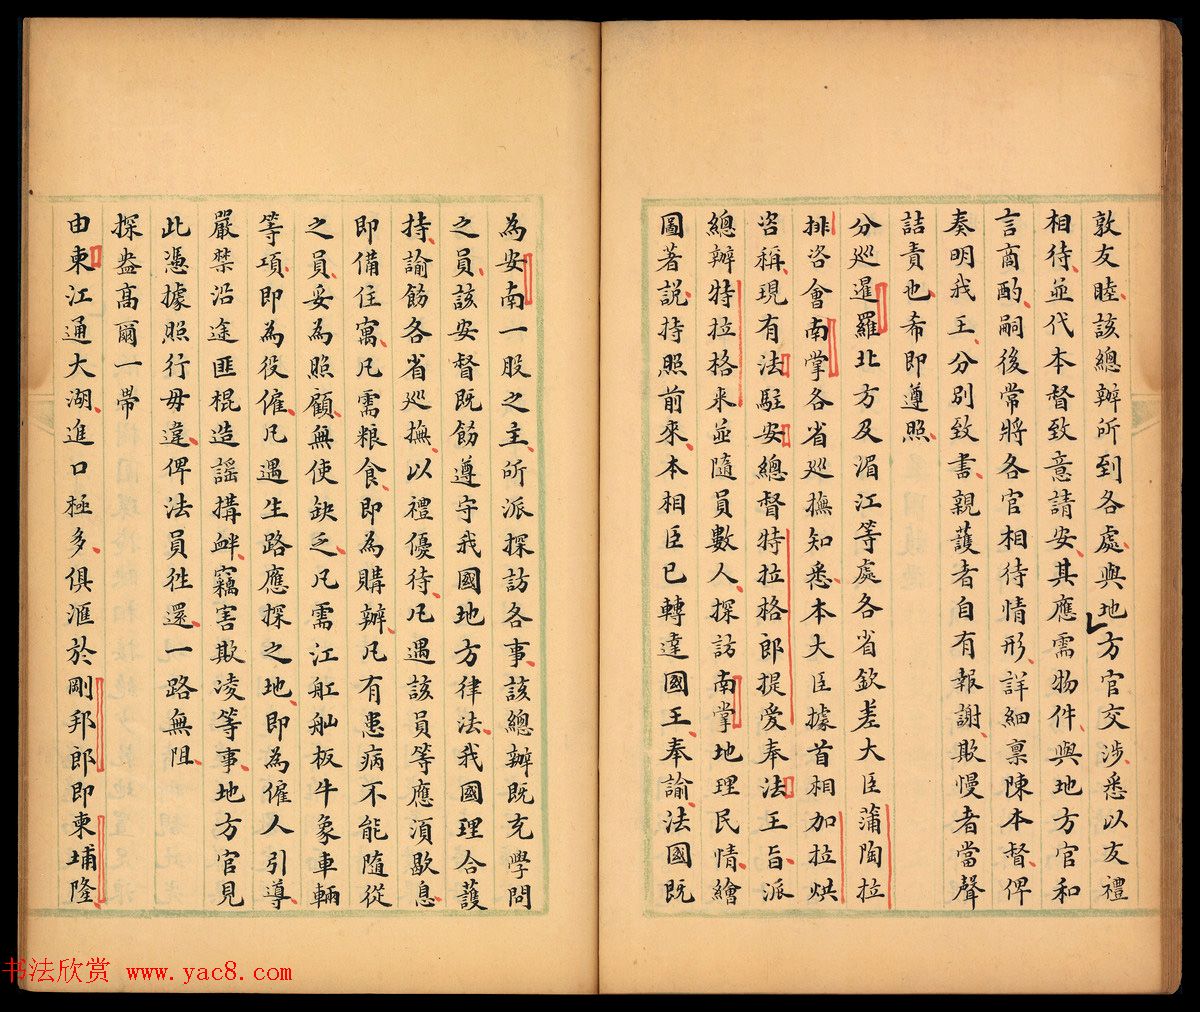 敦友睦該總辦所到各處與地方官交涉悉以友禮
相待並代本督致意請安其應需物件與地方官和
言商酌嗣後常將各官相待情形詳細禀陳本督俾
奏明我王分別致書親護者自有報謝欺慢者當聲
詰責也希即遵照
分巡暹羅北方及湄江等處各省欽差大臣蒲陶拉
排咨會南掌各省巡撫知悉本大臣據首相加拉烘
咨稱現有法駐安總督特拉格郎提愛奉法王旨派
總辦特拉格來並隨員數人探訪南掌地理民情繪
圖著說持照前來本相臣已轉達國王奉諭法國既
為安南一股之主所派探訪各事該總辦既充學問
之員該安督既飭遵守我國地方律法我國理合護
持諭飭各省巡撫以禮優待凡遇該員等應須歇息
即備住寓凡需粮食即為購辦凡有患病不能隨從
之員妥為照顧無使缺乏凡需江舡舢板牛象車輛
等項即為役僱凡遇生路應探之地即為僱人引導
嚴禁沿途匪棍造謡搆衅竊害欺凌等事地方官見
此憑據照行毋違俾法員徃還一路無阻
探盎高爾一帶
由柬江通大湖進口極多俱滙於剛邦郎即柬埔隆
书法欣赏 www.yac8.com